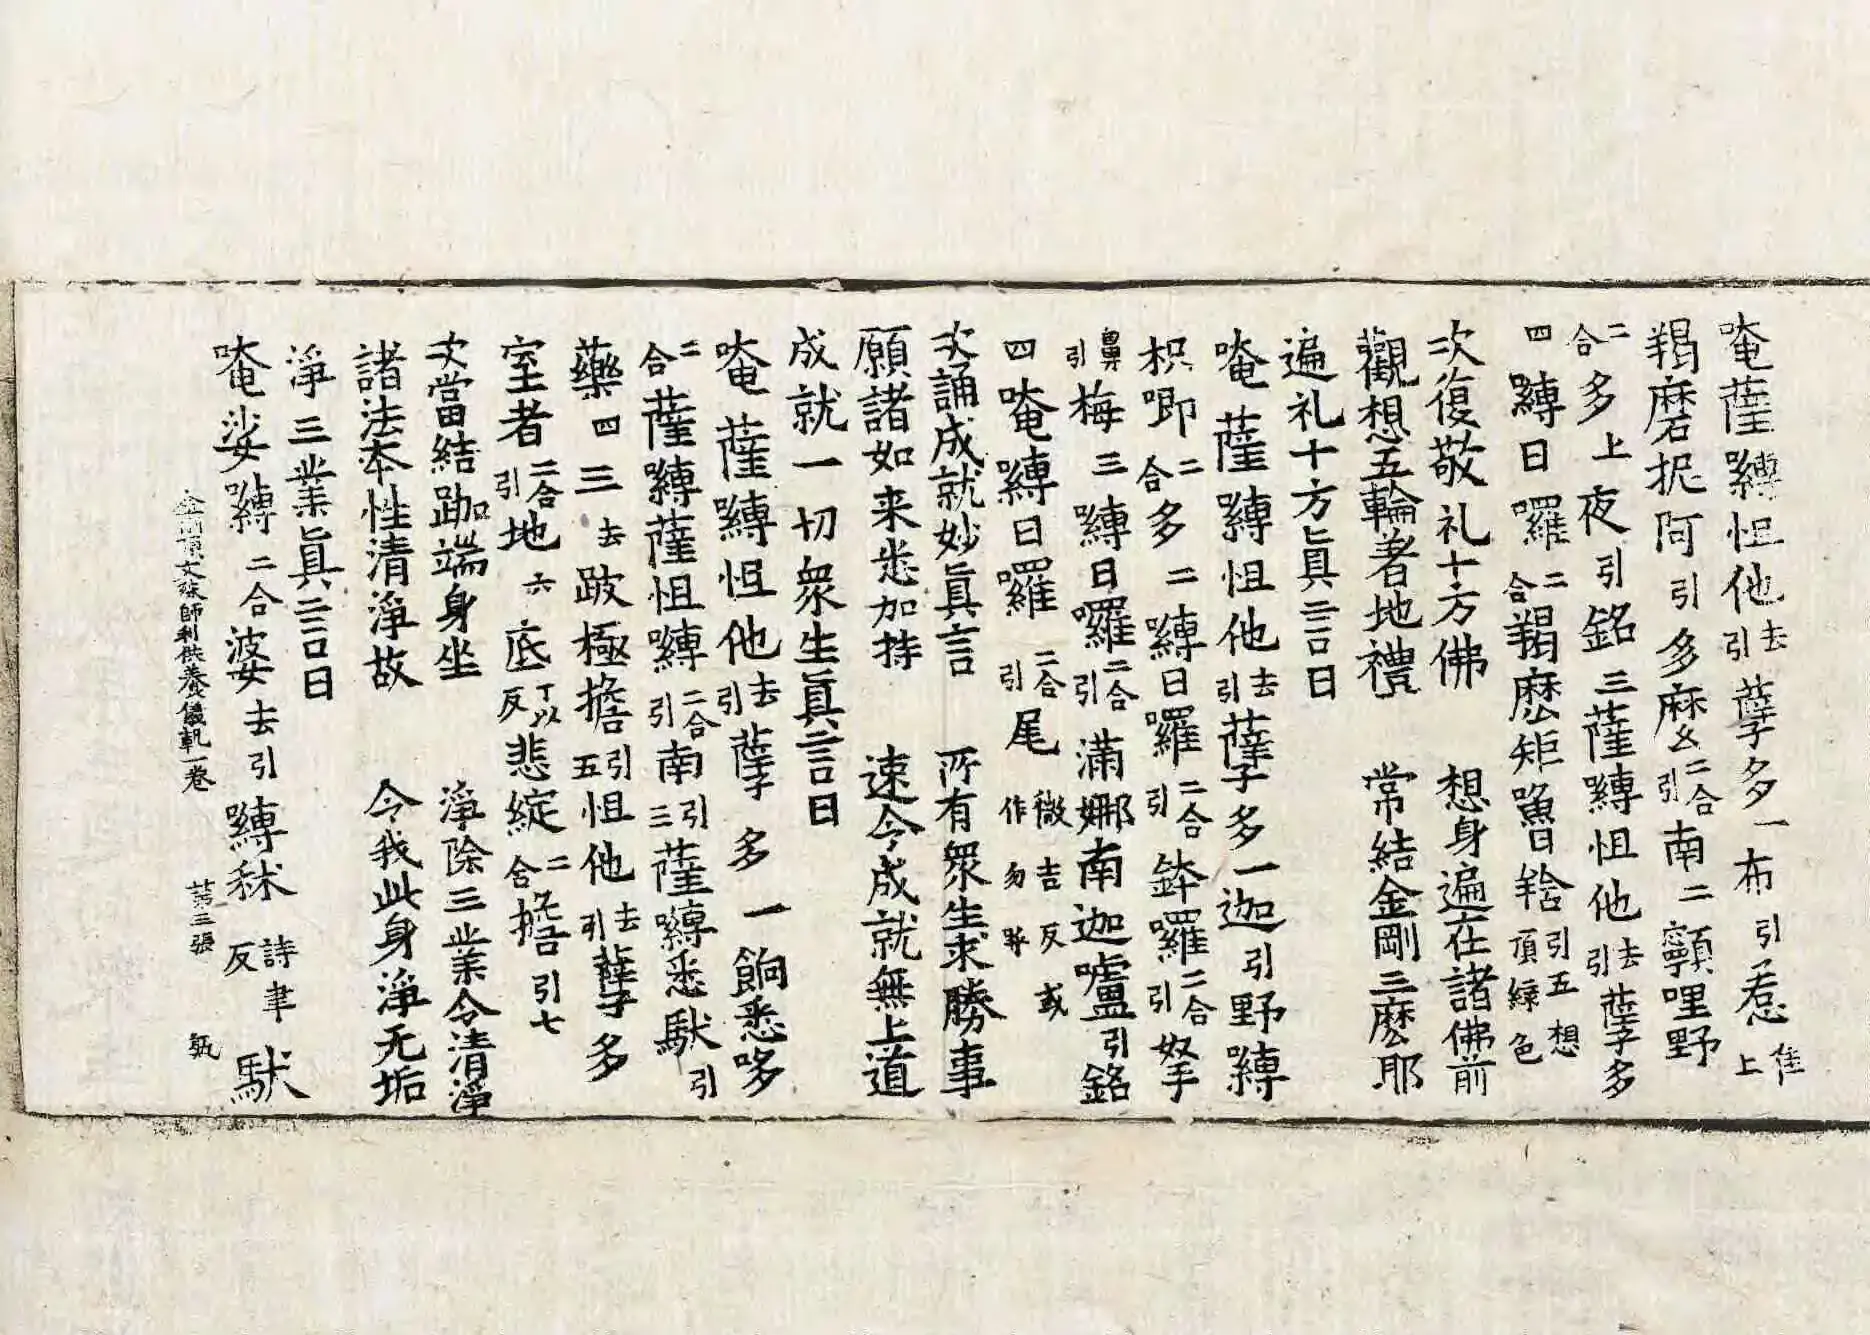 唵薩嚩怛他去引孽多一布引惹隹上
羯磨抳阿引多麼二合引南二顐哩野
二合多上夜引銘三薩嚩怛他去引孽多
四嚩日囉二合羯麼矩嚕舍引五想頂緑色
次復敬礼十方佛　想身遍在諸佛前
觀想五輪著地禮　常結金剛三麽耶
遍礼十方真言曰
唵薩嚩怛他去引孽多一迦引野嚩
枳唧二合多二嚩日囉二合引鉢囉二合引拏
鼻引梅三嚩日囉二合引滿娜南迦嚧引銘
四唵嚩日囉二合引尾微吉反或作勿
次誦成就妙真言　所有衆生求勝事
願諸如来悉加持　速令成就無上道
成就一切衆生真言曰
唵薩嚩怛他去引孽多一餉悉哆
二合薩嚩薩怛嚩二合引南引三薩嚩悉馱引
藥四三去跛極擔引五怛他去引孽多
室者二合引地六底丁以反悲綻二合擔引七
次當結跏端身坐　淨除三業令清淨
諸法本性清淨故　令我此身淨无垢
淨三業真言曰
唵娑嚩二合婆去引嚩秫詩聿反馱
金剛頂文殊師利供養儀軌一卷　第三張